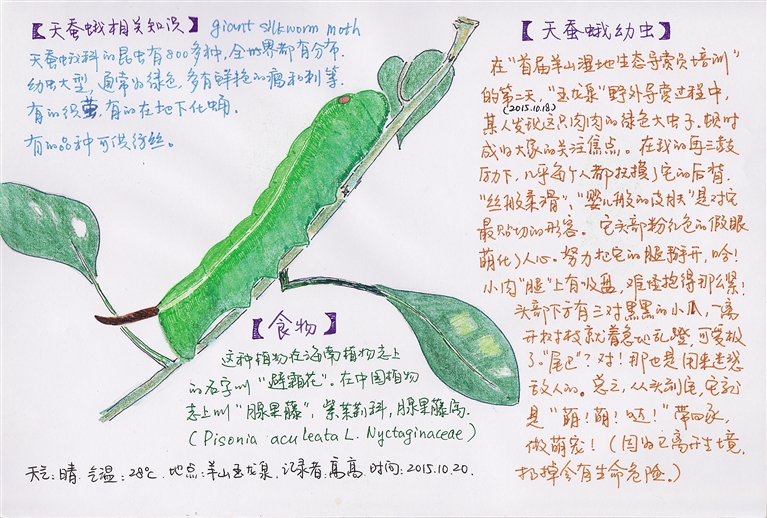 【天蚕蛾相关知识】 giant silkworm moth
天蚕蛾科的昆虫有800多种,全世界都有分布.
幼虫大型,通常为绿色,多有鲜艳的瘤和刺等.
有的织茧,有的在地下化蛹.
有的品种可供纺丝。
【天蚕蛾幼虫】
在"首届羊山湿地生态导赏员培训"
的第二天,"玉龙泉"野外导赏过程中,
(2015.10.18)
某人发现这只肉肉的绿色大虫子.顿时
成为大家的关注焦点。在我的再三鼓
励下,几乎每个人都抚摸了它的后背.
"丝般柔滑"、"婴儿般的皮肤"是对它
最贴切的形容。它头部粉红色的假眼
萌化了人心。努力把它的腿掰开,哈!
小肉"腿"上有吸盘,难怪抱得那么紧!
头部下方有三对黑黑的小爪,一离
开树枝就着急地乱蹬,可爱极
了."尾巴"?对!那也是用来迷惑
敌人的。总之,从头到尾,它就
是"萌!萌!哒!"带回家,
做萌宠!(因为已离开生境,
扔掉会有生命危险。)
【食物】
这种植物在海南植物志上
的名字叫"避霜花"。在中国植物
志上叫"腺果藤",紫茉莉科,腺果藤属.
(Pisonia aculeata L. Nyctaginaceae)
天气:晴.气温:28℃.地点:羊山玉龙泉.记录者:高高.时间:2015.10.20.